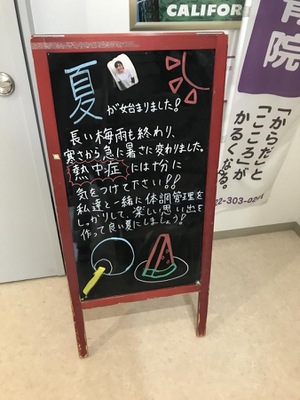 CALIFOR
夏が始まりました!
長い梅雨も終わり、
寒さから急に暑さに変わりました。
熱中症には十分に
気をつけて下さい!!
私達と一緒に体調管理を
しっかりして、楽しい思い出を
作って良い夏にしましょう!
骨院
「からだと
こころ」が
かるくなる。
22-303-02